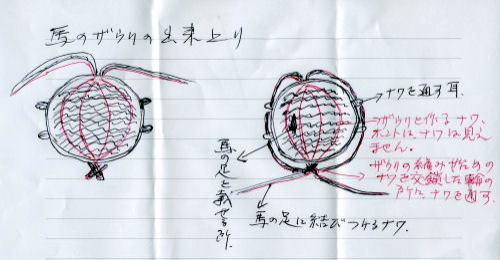 馬のザウリの出来上り
ナワを通す耳.
ザウリを作るナワ、
ホントはナワは見え
ません。
ザウリの編みぞめの
ナワを交鎖した輪の
所にナワを通す.
馬の足を載せる所.
馬の足に結びつけるナワ.